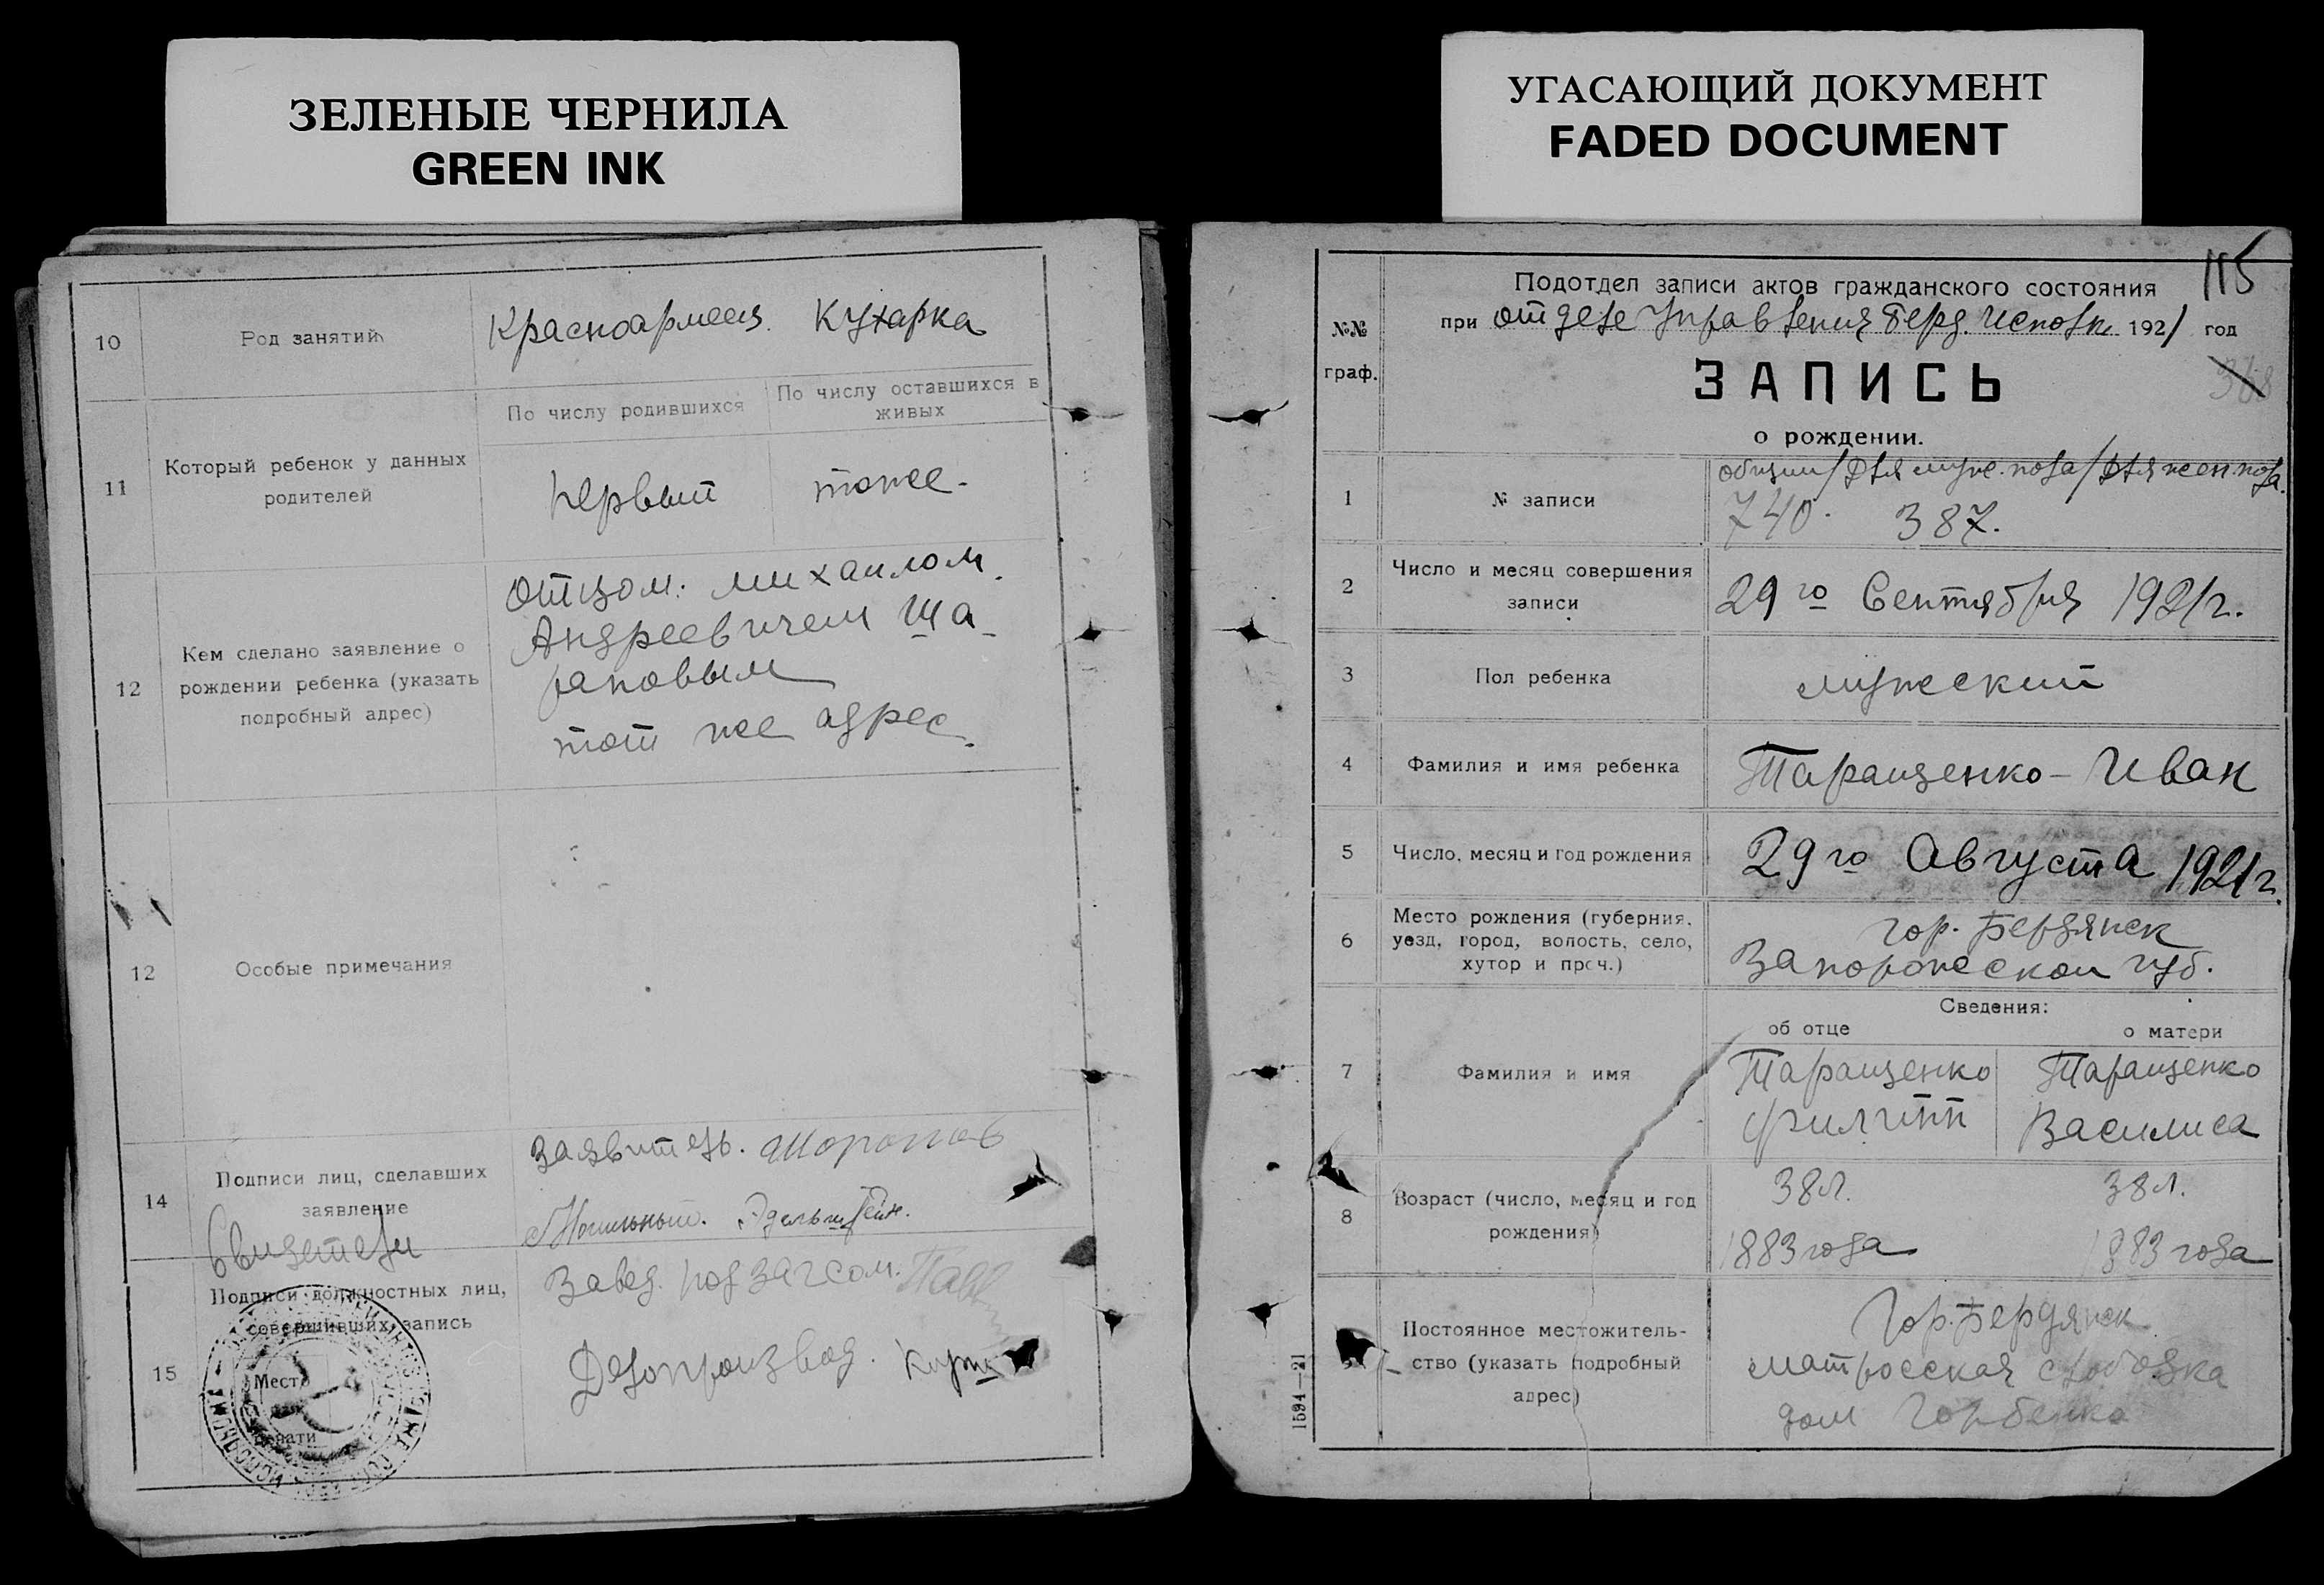 ЗЕЛЕНЫЕ ЧЕРНИЛА
GREEN INK
10
Род занятий
Красноармеец Кухарка
11
Который ребенок у данных
родителей
По числу родившихся
По числу оставшихся в
живых
первый
тоже.
12
Кем сделано заявление о
рождении ребенка (указать
подробный адрес)
Отцом: Михаилом
Андреевичем Ша-
раповым
тот же адрес.
12
Особые примечания
14
Подписи лиц, сделавших
заявление
Свидетели
Заявитель.
15
Подписи должностных лиц,
совершивших запись
Место
печати
Завед. подзагсом.
Делопроизвод.
УГАСАЮЩИЙ ДОКУМЕНТ
FADED DOCUMENT
115
№№
граф.
Подотдел записи актов гражданского состояния
при отделе Управления Берд. Исполк. 1921 год
ЗАПИСЬ
368
о рождении.
1
№ записи
общий/для муж. пола/для жен. пола.
740. 387.
2
Число и месяц совершения
записи
29го Сентября 1921г.
3
Пол ребенка
мужеский
4
Фамилия и имя ребенка
Таращенко - Иван
5
Число, месяц и год рождения
29го Августа 1921г.
6
Место рождения (губерния,
уезд, город, волость, село,
хутор и проч.)
гор. Бердянск
Запорожской губ.
Сведения:
об отце
о матери
7
Фамилия и имя
Таращенко
Филипп
Таращенко
Василиса
8
Возраст (число, месяц и год
рождения)
38л.
1883 года
38л.
1883 года
9
Постоянное местожитель-
ство (указать подробный
адрес)
Гор. Бердянск
матросская слободка
дом Горбенко
1594—21